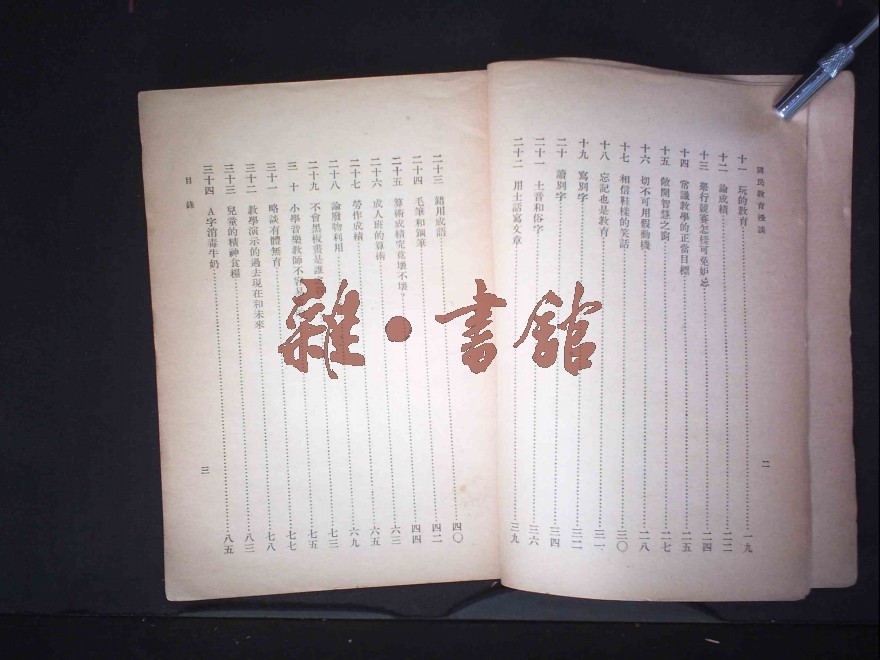 國民教育漫談
二
十一 玩的教育 一九
十二 論成績 二二
十三 舉行競賽怎樣可免妒忌 二四
十四 常識教學的正當目標 二五
十五 敞開智慧之窗 二七
十六 切不可用假動機 二八
十七 相信鞋樣的笑話 三〇
十八 忘記也是教育 三一
十九 寫別字 三二
二十 讀別字 三四
二十一 土音和俗字 三六
二十二 用土話寫文章 三九
二十三 錯用成語 四〇
二十四 毛筆和鋼筆 四二
二十五 算術成績究竟壞不壞？ 四四
二十六 成人班的算術 六三
二十七 勞作成績 六五
二十八 論廢物利用 六九
二十九 不會黑板畫是誰 七三
三十 小學音樂教師不 七五
三十一 略談有體無育 七七
三十二 教學演示的過去現在和未來 七八
三十三 兒童的精神食糧 八三
三十四 A字消毒牛奶 八五
目錄
三
雜·書館